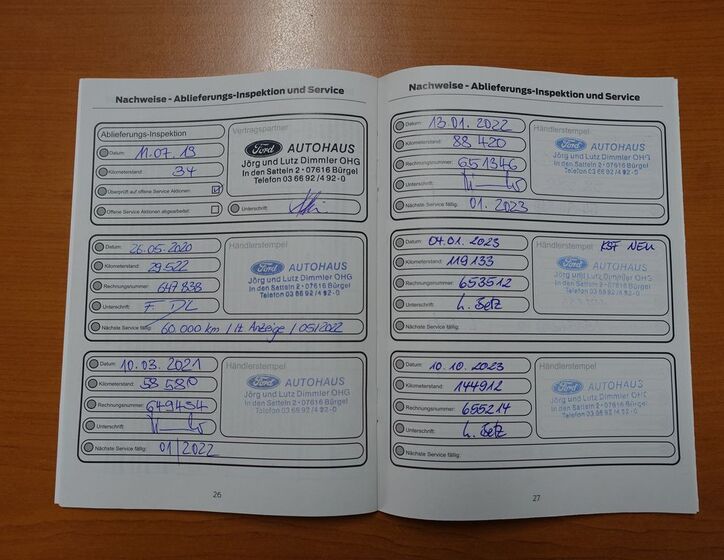 Nachweise - Ablieferungs-Inspektion und Service
Ablieferungs-Inspektion
Datum: 11.07.19
Kilometerstand: 34
Überprüft auf offene Service Aktionen
Offene Service Aktionen abgearbeitet
Vertragspartner
Ford AUTOHAUS
Jörg und Lutz Dimmler OHG
In den Satteln 2 · 07616 Bürgel
Telefon 03 66 92 / 4 92 - 0
Unterschrift:
Datum: 26.05.2020
Kilometerstand: 29.522
Rechnungsnummer: 647838
Unterschrift:
Nächste Service fällig: 60.000 km / lt. Anzeige / 05/2022
Händlerstempel
Ford AUTOHAUS
Jörg und Lutz Dimmler OHG
In den Satteln 2 · 07616 Bürgel
Telefon 03 66 92 / 4 92 - 0
Datum: 10.03.2021
Kilometerstand: 58580
Rechnungsnummer: 649454
Unterschrift:
Nächste Service fällig: 01/2022
Händlerstempel
Ford AUTOHAUS
Jörg und Lutz Dimmler OHG
In den Satteln 2 · 07616 Bürgel
Telefon 03 66 92 / 4 92 - 0
26
Nachweise - Ablieferungs-Inspektion und Service
Datum: 13.01.2022
Kilometerstand: 88 420
Rechnungsnummer: 651346
Unterschrift:
Nächste Service fällig: 01.2023
Händlerstempel
Ford AUTOHAUS
Jörg und Lutz Dimmler OHG
In den Satteln 2 · 07616 Bürgel
Telefon 03 66 92 / 4 92 - 0
Datum: 04.01.2023
Kilometerstand: 119133
Rechnungsnummer: 653512
Unterschrift:
Nächste Service fällig:
Händlerstempel NEU
Ford AUTOHAUS
Jörg und Lutz Dimmler OHG
In den Satteln 2 · 07616 Bürgel
Telefon 03 66 92 / 4 92 - 0
Datum: 10.10.2023
Kilometerstand: 144912
Rechnungsnummer: 655214
Unterschrift:
Nächste Service fällig:
Händlerstempel
Ford AUTOHAUS
Jörg und Lutz Dimmler OHG
In den Satteln 2 · 07616 Bürgel
Telefon 03 66 92 / 4 92 - 0
27